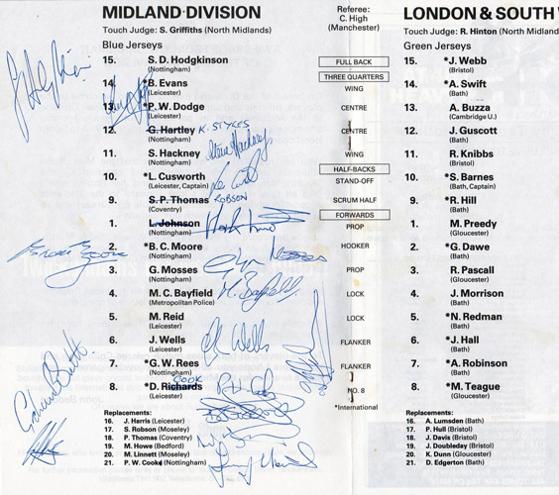 MIDLAND DIVISION
Touch Judge: S. Griffiths (North Midlands)
Blue Jerseys
15. S. D. Hodgkinson
(Nottingham)
14. *B. Evans
(Leicester)
13. *P. W. Dodge
(Leicester)
12. G. Hartley K. STYLES
(Nottingham)
11. S. Hackney Steve Hackney
(Nottingham)
10. *L. Cusworth
(Leicester, Captain)
9. S. P. Thomas ROBSON
(Coventry)
1. L. Johnson
(Nottingham)
2. *B. C. Moore
(Nottingham)
3. G. Mosses
(Nottingham)
4. M. C. Bayfield M. Bayfield
(Metropolitan Police)
5. M. Reid
(Leicester)
6. J. Wells J. Wells
(Leicester)
7. *G. W. Rees
(Nottingham)
8. D. Richards COOK
(Leicester)
Replacements:
16. J. Harris (Leicester)
17. S. Robson (Moseley)
18. P. Thomas (Coventry)
19. M. Howe (Bedford)
20. M. Linnett (Moseley)
21. P. W. Cook (Nottingham)
Referee:
C. High
(Manchester)
FULL BACK
THREE QUARTERS
WING
CENTRE
CENTRE
WING
HALF-BACKS
STAND-OFF
SCRUM HALF
FORWARDS
PROP
HOOKER
PROP
LOCK
LOCK
FLANKER
FLANKER
NO. 8
*International
LONDON & SOUTH
Touch Judge: R. Hinton (North Mid
Green Jerseys
15. *J. Webb
(Bristol)
14. *A. Swift
(Bath)
13. A. Buzza
(Cambridge U.)
12. J. Guscott
(Bath)
11. R. Knibbs
(Bristol)
10. *S. Barnes
(Bath, Captain)
9. *R. Hill
(Bath)
1. M. Preedy
(Gloucester)
2. *G. Dawe
(Bath)
3. R. Pascall
(Gloucester)
4. J. Morrison
(Bath)
5. *N. Redman
(Bath)
6. *J. Hall
(Bath)
7. *A. Robinson
(Bath)
8. *M. Teague
(Gloucester)
Replacements:
16. A. Lumsden (Bath)
17. P. Hull (Bristol)
18. J. Davis (Bristol)
19. J. Doubleday (Bristol)
20. K. Dunn (Gloucester)
21. D. Edgerton (Bath)